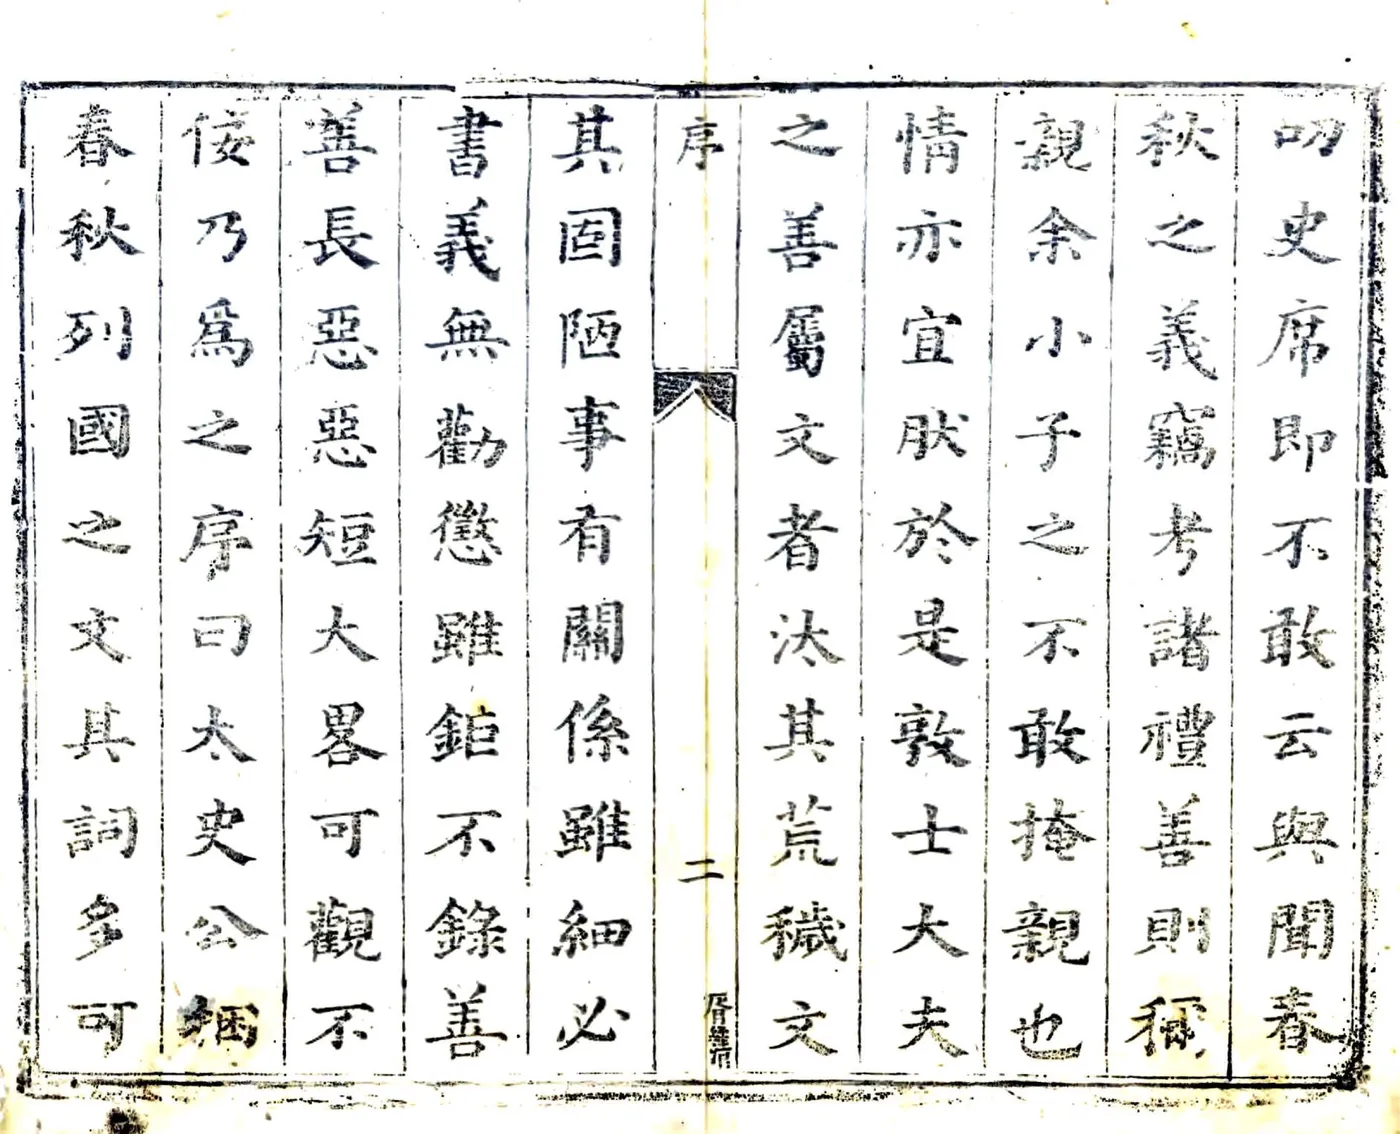 叨史席即不敢云與聞春
秋之義竊考諸禮善則稱
親余小子之不敢掩親也
情亦宜肰於是敦士大夫
之善屬文者汰其荒穢文
序
二
其固陋事有關係雖細必
書義無勸懲雖鉅不錄善
善長惡惡短大畧可觀不
佞乃爲之序曰太史公
春秋列國之文其詞多可